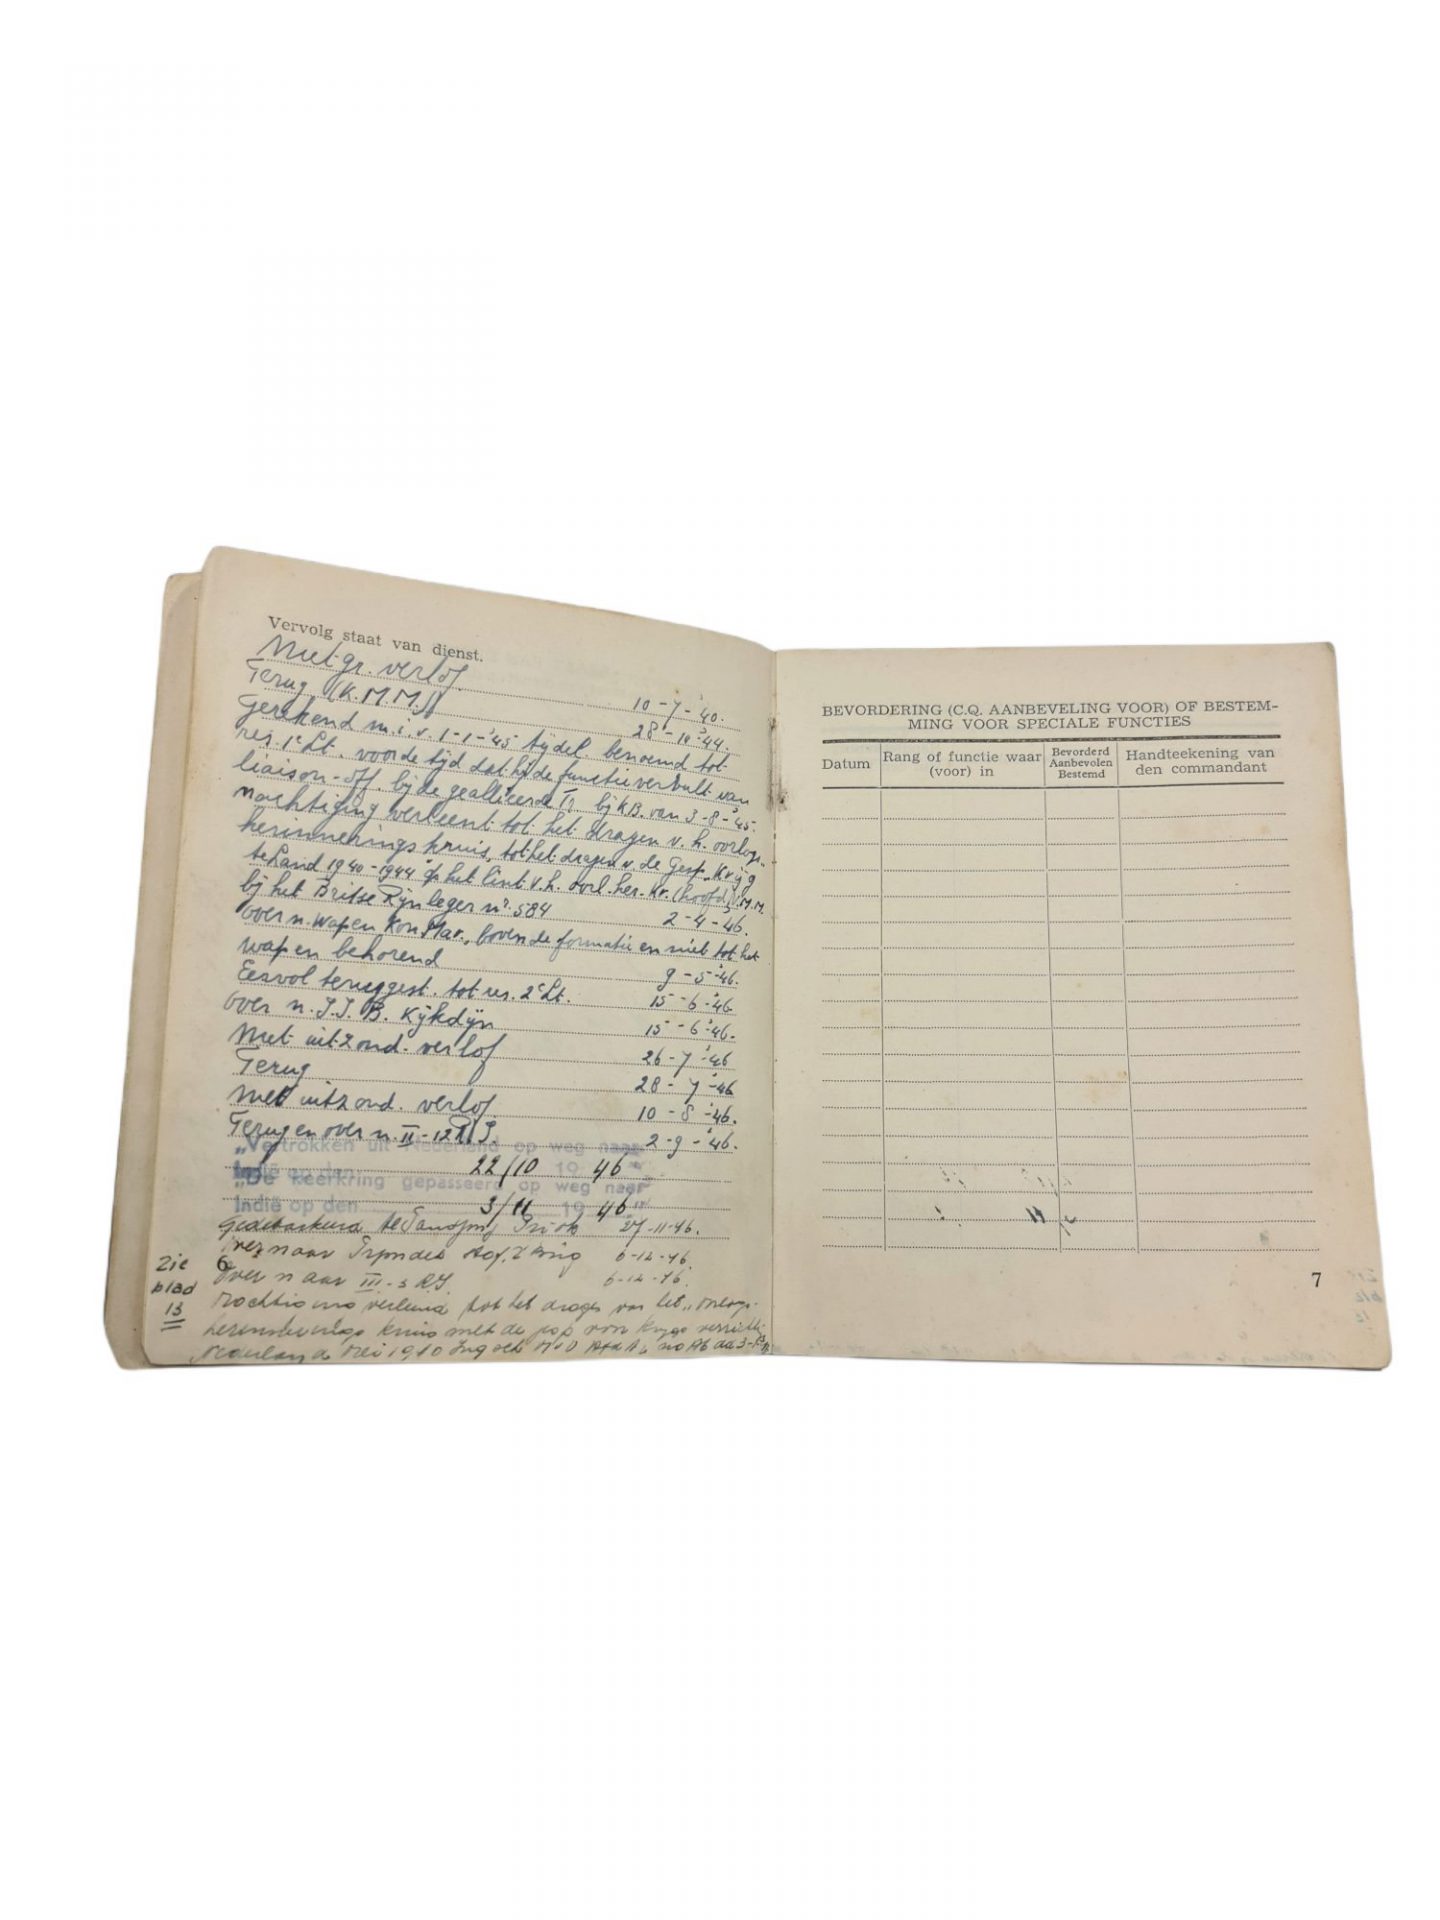 Vervolg staat van dienst.
Met gr. verlof. 10-7-'40.
Terug (K.M.M.) 28-10-'44.
Gerekend m.i.v. 1-1-'45 tijdel. benoemd tot
res. 1e Lt. voor de tijd dat hij de functie vervult van
liaison-off. bij de geallieerde bij KB. van 3-8-'45.
machtiging verleent tot het dragen v. h. oorlogs-
herinneringskruis, tot het dragen v. de Gesp „Krijg
te Land 1940-1944" op het lint v.h. oorl. her. kr. (hoofd M.M.
bij het Britse Rijnleger nr. 584 2-4-'46.
over n. Wapen Kon Mar., boven de formatie en niet tot het
wapen behorend 9-5-'46.
Eervol teruggest. tot res. 2e Lt. 15-6-'46
over n. I.I. B. Kijkdijn 15-6-'46.
Met uitzond. verlof 26-7-'46
Terug 28-7-'46
Met uitzond. verlof. 10-8-'46.
Terug en over n. II-12 R.I. 2-9-'46.
„Vertrokken uit Nederland op weg naar
Indië op den 22/10 1946"
„De keerkring gepasseerd op weg naar
Indië op den 3/11 1946"
gedebarkeerd te Tandjong Priok 27-11-46.
over naar 6-12-46.
Over naar III-3 R.I. 6-12-46.
Machtiging verleend tot het dragen van het „Oorlogs-
herinnerings kruis met de gesp voor krijgs verricht.
Nederland Mei 1940
Zie
blad
13
6
BEVORDERING (C.Q. AANBEVELING VOOR) OF BESTEM-
MING VOOR SPECIALE FUNCTIES
Datum
Rang of functie waar
(voor) in
Bevorderd
Aanbevolen
Bestemd
Handteekening van
den commandant
7